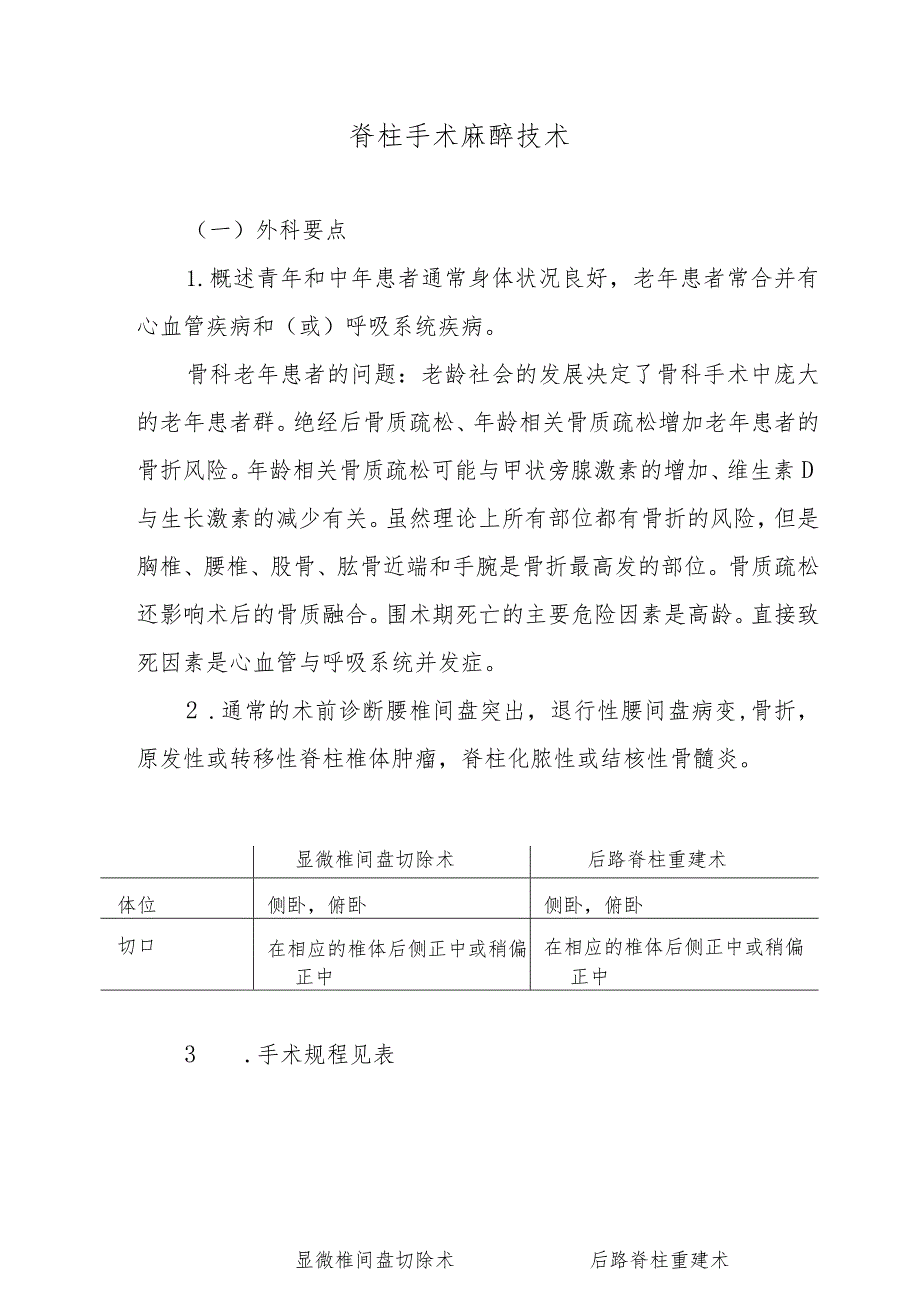 脊柱手术麻醉技术
（一）外科要点
1.概述青年和中年患者通常身体状况良好，老年患者常合并有
心血管疾病和（或）呼吸系统疾病。
骨科老年患者的问题：老龄社会的发展决定了骨科手术中庞大
的老年患者群。绝经后骨质疏松、年龄相关骨质疏松增加老年患者的
骨折风险。年龄相关骨质疏松可能与甲状旁腺激素的增加、维生素D
与生长激素的减少有关。虽然理论上所有部位都有骨折的风险，但是
胸椎、腰椎、股骨、肱骨近端和手腕是骨折最高发的部位。骨质疏松
还影响术后的骨质融合。围术期死亡的主要危险因素是高龄。直接致
死因素是心血管与呼吸系统并发症。
2 .通常的术前诊断腰椎间盘突出，退行性腰间盘病变,骨折，
原发性或转移性脊柱椎体肿瘤，脊柱化脓性或结核性骨髓炎。
显微椎间盘切除术 后路脊柱重建术
体位 侧卧，俯卧 侧卧，俯卧
切口 在相应的椎体后侧正中或稍偏 在相应的椎体后侧正中或稍偏
正中 正中
3 .手术规程见表
显微椎间盘切除术 后路脊柱重建术